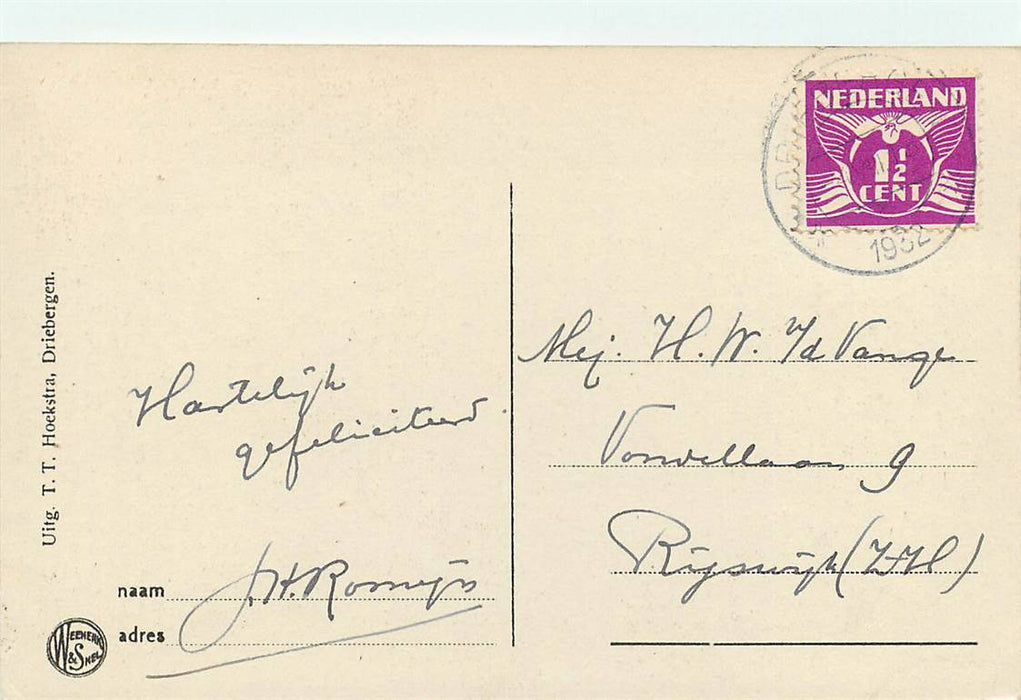 NEDERLAND
1½
CENT
1932
Uitg. T. T. Hoekstra, Driebergen.
Hartelijk
gefeliciteerd.
naam J. H. Romijn
adres
WEENENK
& SNEL
Mej. H. W. v/d Vange
Vondellaan 9
Rijswijk (Z-H)